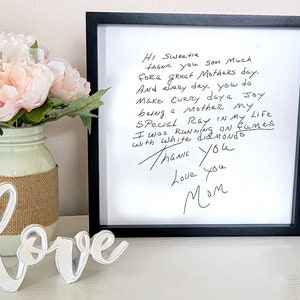 Hi Sweetie
thank you soou much
for a great Mothers day.
And every day, you do
make every day a Joy
being a mother my
special Ray in my life
I was running on fumes
with white diamonds
Thank You
Love you
Mom
love